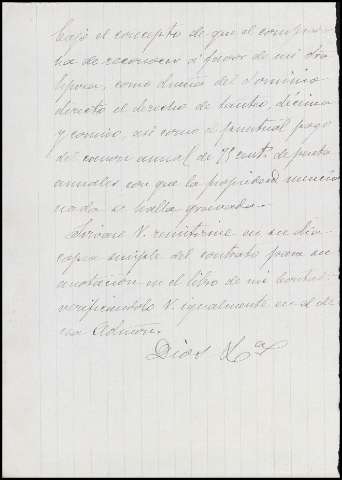 bajo el concepto de que el comprador
ha de reconocer á favor de mi
Esposa, como dueña del dominio
directo el derecho de tanteo, décima
y comiso, así como el puntual pago
del canon anual de 75 cent. de peseta
anuales con que la propiedad mencio
nada se halla gravada.
Sírvase V. remitirme en su dia
copia simple del contrato para su
anotacion en el libro de mi
verificandolo V. igualmente en el de
esa Admon.
Dios